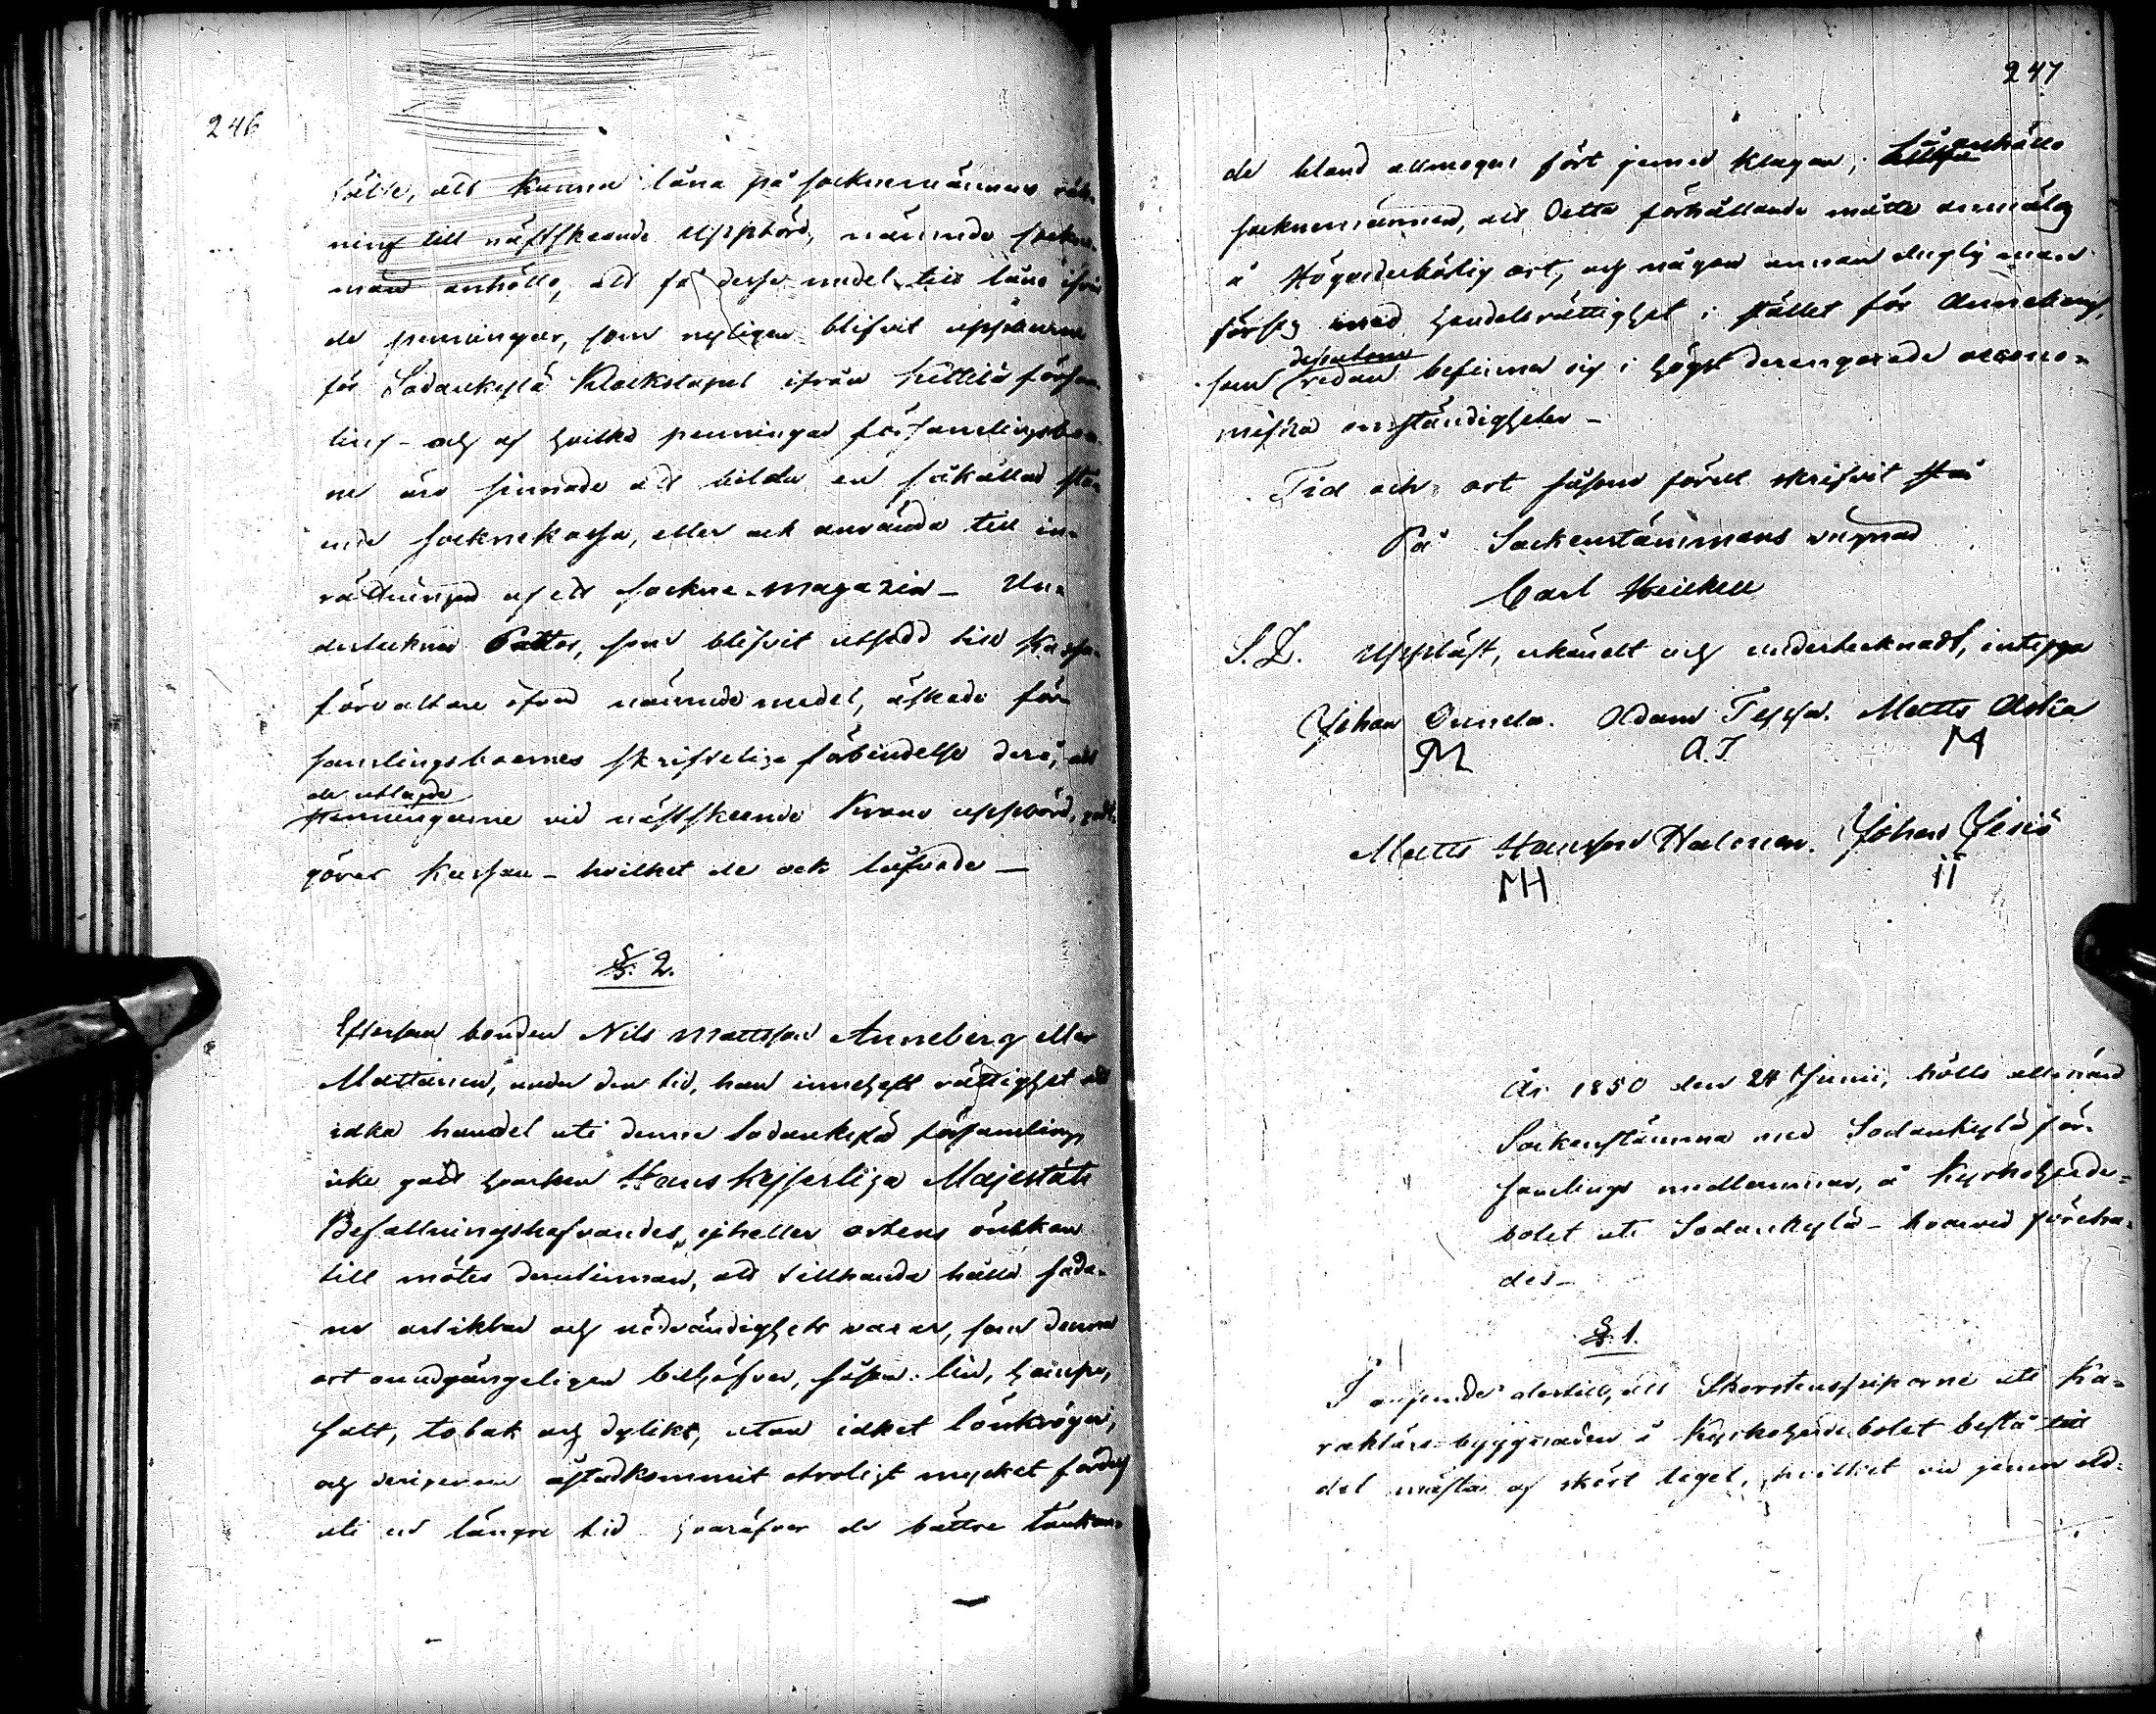 246
att kunna låna på socknemännens räk-
ning till nästskeende Uppbörd, nämnde sockne-
män anhöllo, att få desse medel till låns ifrån
de penningar, som nyligen blifvit uppburne
för Sodankylä Klockstapel ifrån Kittilä försam-
ling - och af hvilka penningar församlingsboer-
ne äro sinnade att bilda en såkallad stå-
ende socknekassa, eller ock använda till in-
rättningen af ett sockne-magazin - Un-
dertecknad som blifvit utsedd till Kassa-
förvaltare öfver nämnde medel, äskade för-
samlingsboernes skriftelige förbindelse derå, att
de utlagde
penningarne vid nästskeende Krono uppbörd, godt-
göres Kassan - hvilket de ock lofvade -
§. 2.
Eftersom bonden Nils Mattsson Anneberg eller
Mattanen, under den tid, han innehaft rättighet att
idka handel uti denne Sodankylä församling
icke gått hvarken Hans Kejserliga Majestäts
Befallningshafvandes, ejheller ortens önskan
till mötes derutinnan, att tillhanda hålla såda-
ne artiklar och nödvändighets varor, som denna
ort oundgängeligen behöfver, såsom: lin, hampa,
salt, tobak och dylikt, utan idket lönkrögeri,
och derigenom åstadkommit otroligt mycket förderf
uti en längre tid hvaröfver de bättre tänkan-
247
de bland allmogen fört jemn klagan; anhöllo
sockenemännen, att Detta förhållande måtte anmälas
å Högvederbörlig ort, och någon annan duglig man
förses med handelsrättighet i stället för Anneberg,
dessutom
som redan befinner sig i högst derangerade oecono-
miska omständigheter -
Tid och ort såsom förut skrifvit stå
På Sockenstämmans vägnar
Carl Heickell
S. D. Uppläst, erkändt och undertecknadt, intyga
Johan Adam Teppa. Matts Aska
M A.T. M
Matts Hansson Halonen. Johan Jesiö
MH II
År 1850 den 24 Junii, hölls allmänn
Sockenstämma med Sodankylä för-
samlings medlemmar, å Kyrkoherde-
bolet uti Sodankylä - hvarvid föreha-
des -
§. 1.
I anseende dertill, att Skorstenspiporne uti Ka-
raktärs byggnaden å Kyrkoherdebolet bestå till
del mästa af skört tegel, hvilket vid jemn eld-